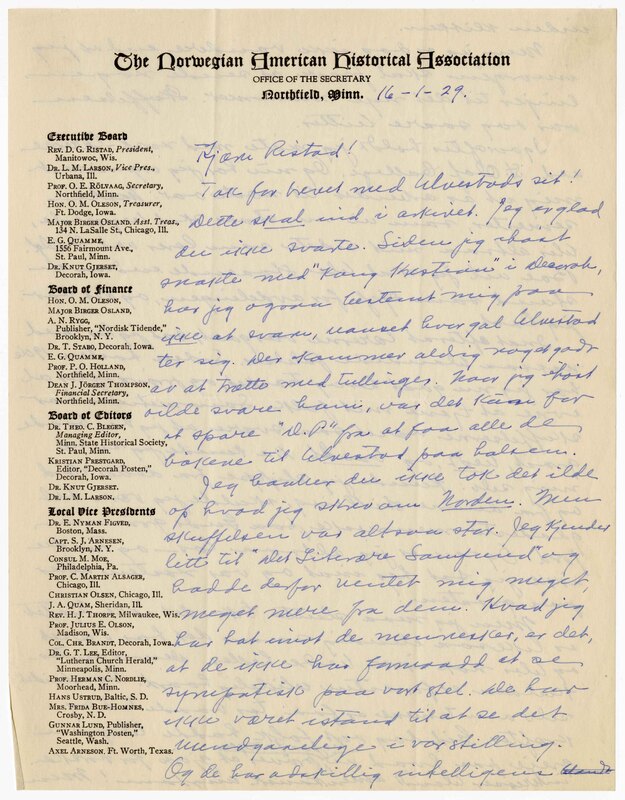 The Norwegian American Historical Association
OFFICE OF THE SECRETARY
Northfield, Minn. 16-1-29.
Executive Board
REV. D. G. RISTAD, President,
Manitowoc, Wis.
DR. L. M. LARSON, Vice Pres.,
Urbana, Ill.
PROF. O. E. RÖLVAAG, Secretary,
Northfield, Minn.
HON. O. M. OLESON, Treasurer,
Ft. Dodge, Iowa.
MAJOR BIRGER OSLAND, Asst. Treas.,
134 N. LaSalle St., Chicago, Ill.
E. G. QUAMME,
1556 Fairmount Ave.,
St. Paul, Minn.
DR. KNUT GJERSET,
Decorah, Iowa.
Board of Finance
HON. O. M. OLESON,
MAJOR BIRGER OSLAND,
A. N. RYGG,
Publisher, "Nordisk Tidende,"
Brooklyn, N. Y.
DR. T. STABO, Decorah, Iowa.
E. G. QUAMME,
PROF. P. O. HOLLAND,
Northfield, Minn.
DEAN J. JÖRGEN THOMPSON,
Financial Secretary,
Northfield, Minn.
Board of Editors
DR. THEO. C. BLEGEN,
Managing Editor,
Minn. State Historical Society,
St. Paul, Minn.
KRISTIAN PRESTGARD,
Editor, "Decorah Posten,"
Decorah, Iowa.
DR. KNUT GJERSET.
DR. L. M. LARSON.
Local Vice Presidents
DR. E. NYMAN FIGVED,
Boston, Mass.
CAPT. S. J. ARNESEN,
Brooklyn, N. Y.
CONSUL M. MOE,
Philadelphia, Pa.
PROF. C. MARTIN ALSAGER,
Chicago, Ill.
CHRISTIAN OLSEN, Chicago, Ill.
J. A. QUAM, Sheridan, Ill.
REV. H. J. THORPE, Milwaukee, Wis.
PROF. JULIUS E. OLSON,
Madison, Wis.
COL. CHR. BRANDT, Decorah, Iowa.
DR. G. T. LEE, Editor,
"Lutheran Church Herald,"
Minneapolis, Minn.
PROF. HERMAN C. NORDLIE,
Moorhead, Minn.
HANS USTRUD, Baltic, S. D.
MRS. FRIDA BUE-HOMNES,
Crosby, N. D.
GUNNAR LUND, Publisher,
"Washington Posten,"
Seattle, Wash.
AXEL ARNESON, Ft. Worth, Texas.
Kjære Ristad!
Tak for brevet med Ulvestads sit!
Dette skal ind i arkivet. Jeg er glad
du ikke svarte. Siden jeg ihöst
snakte med "Kong Kristian" i Decorah,
har jeg ogsaa bestemt mig paa
ikke at svare, uanset hvor gal Ulvestad
ter sig. Der kommer aldrig noget godt
av at trætte med tullinger. Naar jeg ihöst
vilde svare ham, var det kun for
at spare "D.P." fra at faa alle de
bökene til Ulvestad paa halsen.
Jeg haaber du ikke tok det ilde
op hvad jeg skrev om Norden. Men
skuffelsen var altsaa stor. Jeg kjender
litt til "Det Literære Samfund" og
hadde derfor ventet mig meget,
meget mere fra dem. Hvad jeg
har imot de mennesker, er det,
at de ikke har formaadd at se
sympatisk paa vort stel. De har
ikke været istand til at se det
uundgaaelige i vor stilling.
Og de har adskillig intelligens